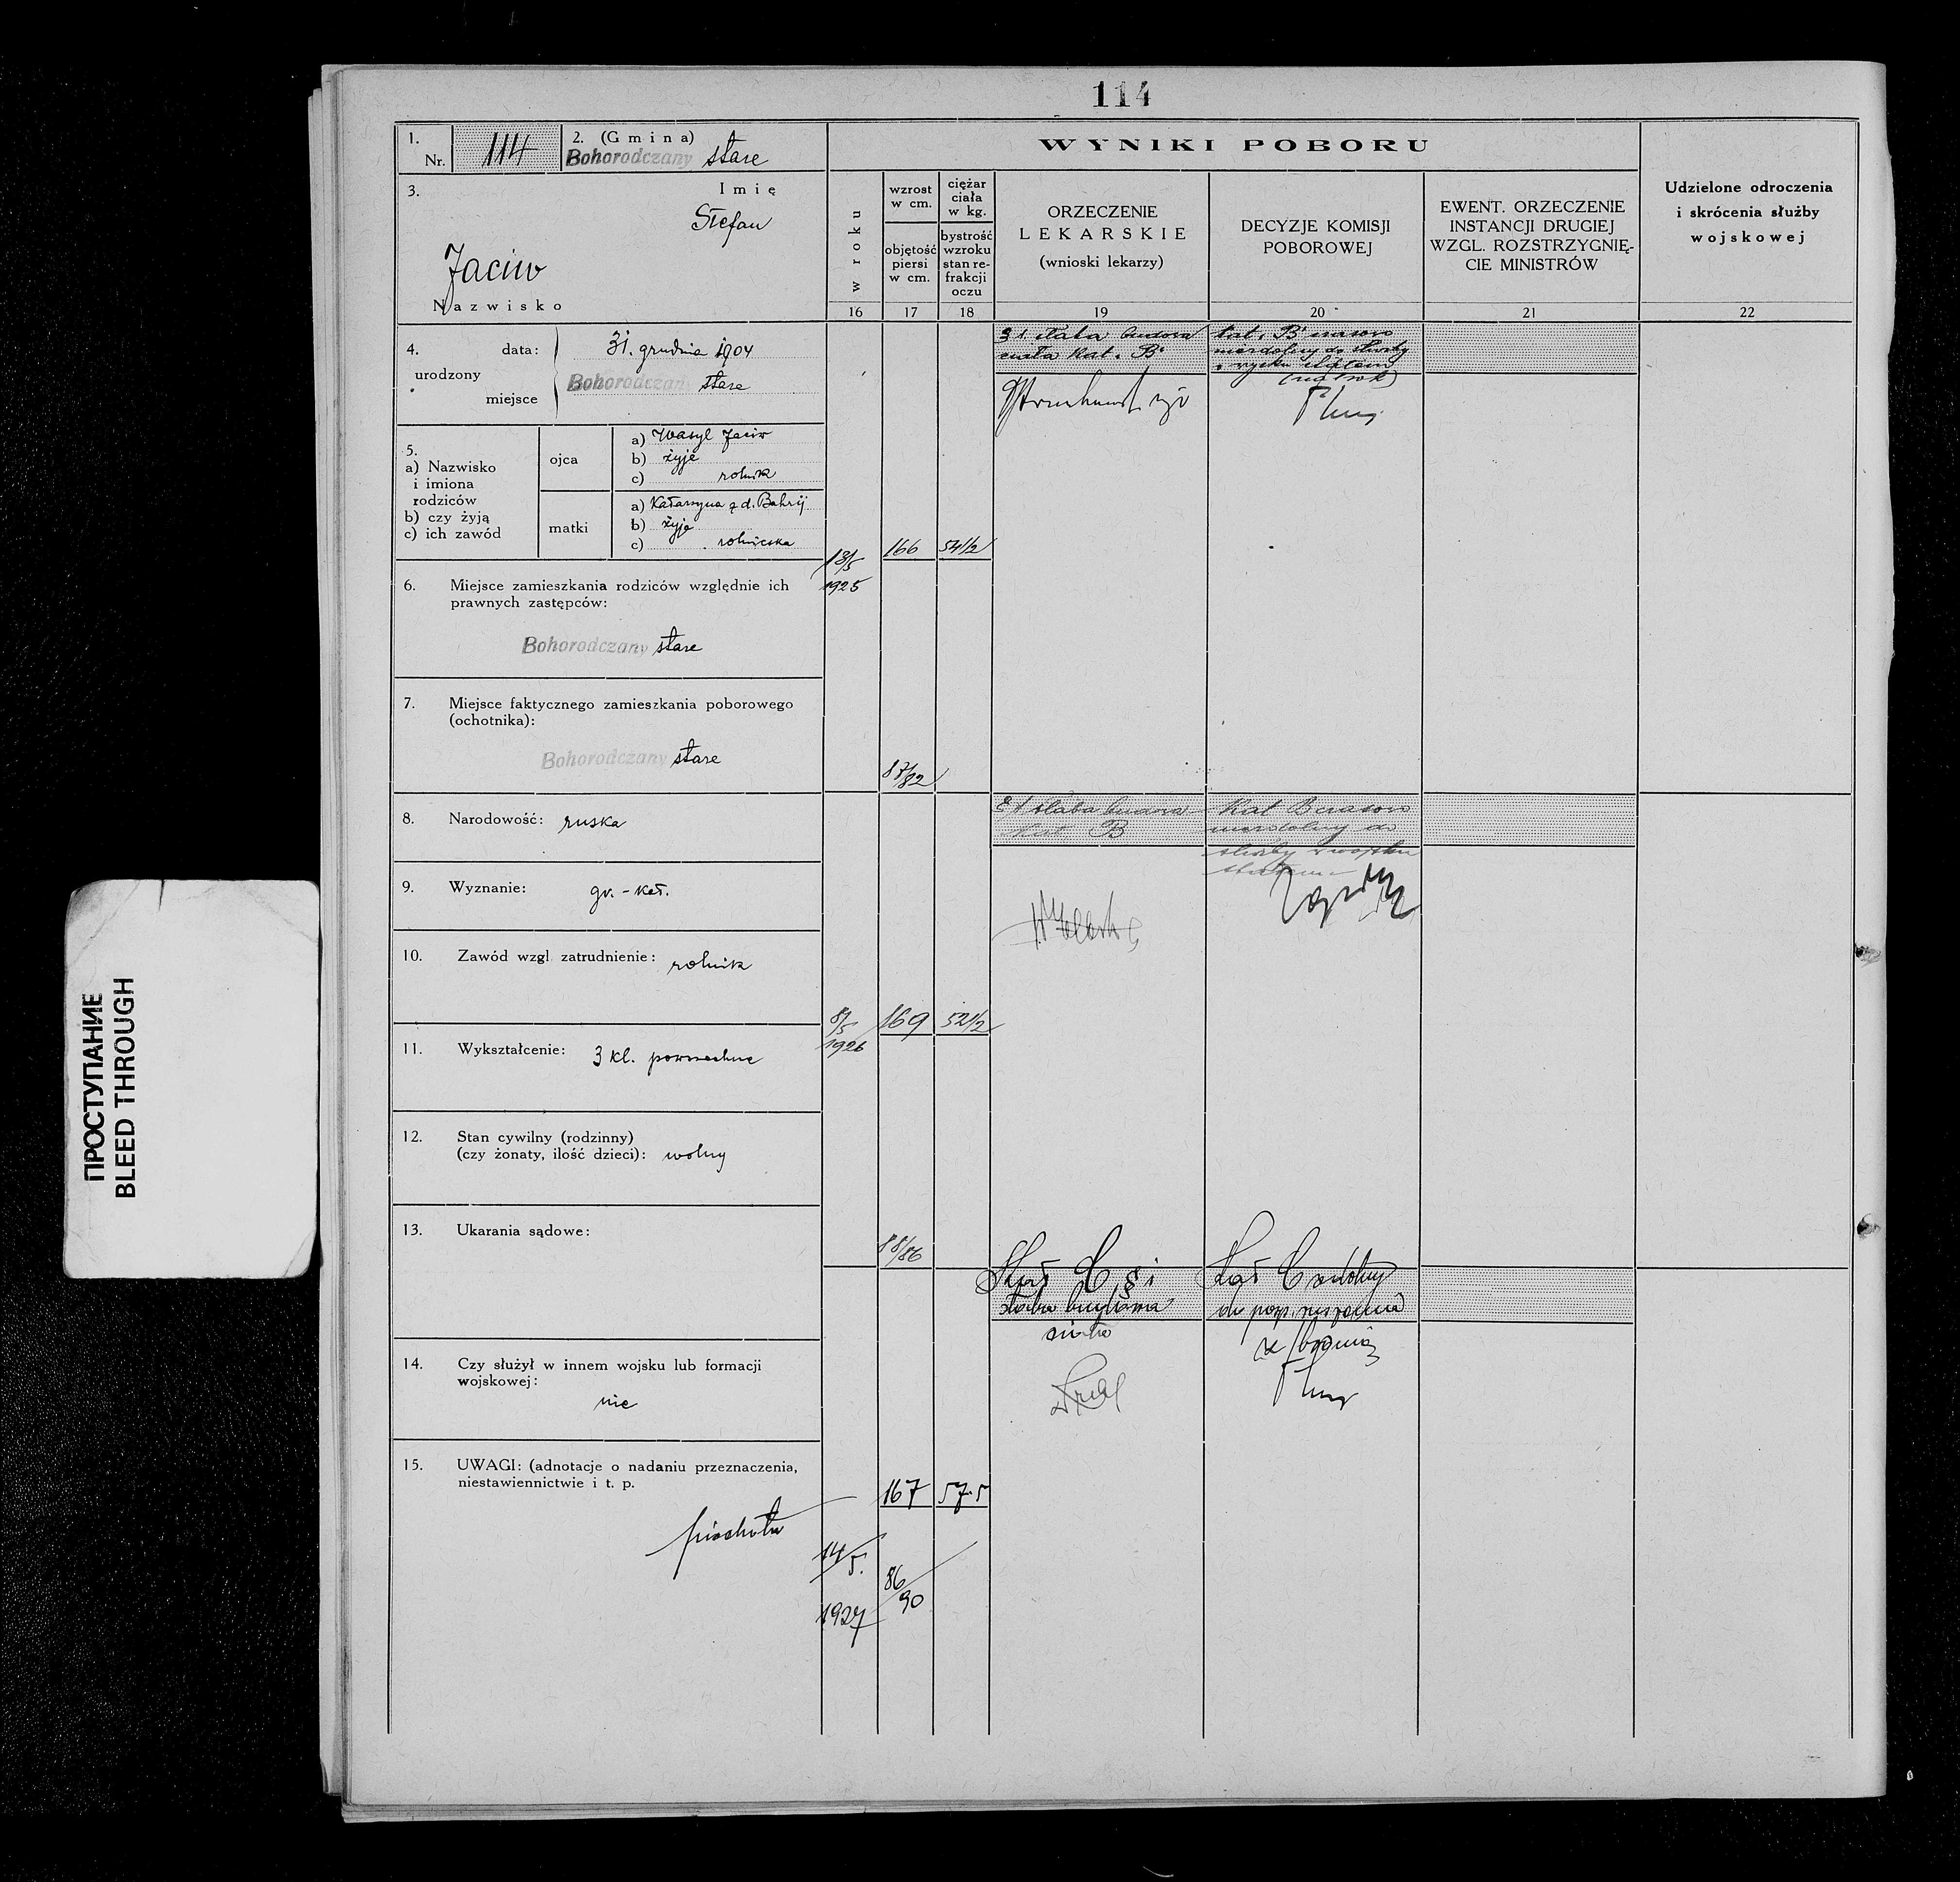 114
1.
Nr. 114
2. (Gmina)
Bohorodczany stare
3. Imię
Stefan
Jaciw
Nazwisko
4. urodzony
data: 31. grudnia 1904
miejsce Bohorodczany stare
5.
a) Nazwisko
i imiona
rodziców
b) czy żyją
c) ich zawód
ojca
a) Wasyl Jaciw
b) żyje
c) rolnik
matki
a) Katarzyna z d. Bahrij
b) żyje
c) rolniczka
6. Miejsce zamieszkania rodziców względnie ich
prawnych zastępców:
Bohorodczany stare
7. Miejsce faktycznego zamieszkania poborowego
(ochotnika):
Bohorodczany stare
8. Narodowość: ruska
9. Wyznanie: gr.-kat.
10. Zawód wzgl. zatrudnienie: rolnik
11. Wykształcenie: 3 kl. powszechne
12. Stan cywilny (rodzinny)
(czy żonaty, ilość dzieci): wolny
13. Ukarania sądowe:
14. Czy służył w innem wojsku lub formacji
wojskowej:
nie
15. UWAGI: (adnotacje o nadaniu przeznaczenia,
niestawiennictwie i t. p.
piechota
WYNIKI POBORU
w roku
16
wzrost
w cm.
objętość
piersi
w cm.
17
ciężar
ciała
w kg.
bystrość
wzroku
stan re-
frakcji
oczu
18
ORZECZENIE
LEKARSKIE
(wnioski lekarzy)
19
DECYZJE KOMISJI
POBOROWEJ
20
EWENT. ORZECZENIE
INSTANCJI DRUGIEJ
WZGL. ROZSTRZYGNIĘ-
CIE MINISTRÓW
21
Udzielone odroczenia
i skrócenia służby
wojskowej
22
18/5
1925
166
54 1/2
87/82
słaba budowa
ciała Kat. B
Kat. B czasowo
niezdolny do służby
8/5
1926
169
52 1/2
88/86
słaba budowa
Kat. B
Kat B czasowo
niezdolny do
służby w wojsku
stałem
14/5.
1927
167
57.5
86/90
Kat C § 1
słaba budowa
ciała
Kat C zdolny
do posp. ruszenia
z bronią
ПРОСТУПАНИЕ
BLEED THROUGH